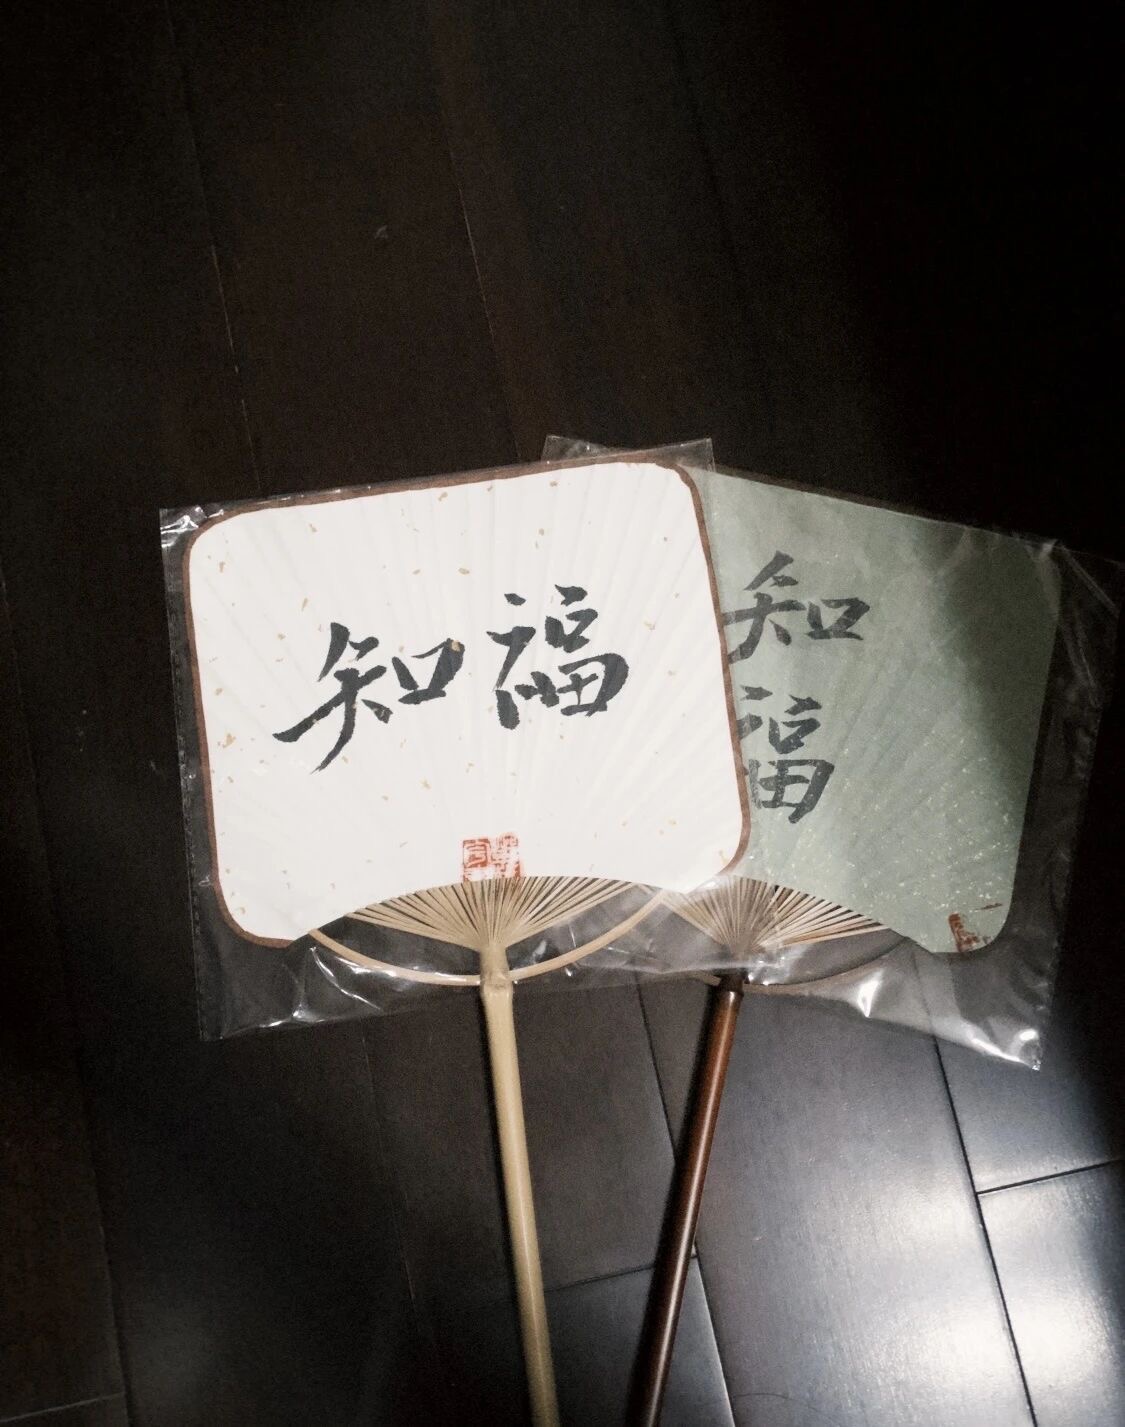 知福
知
福